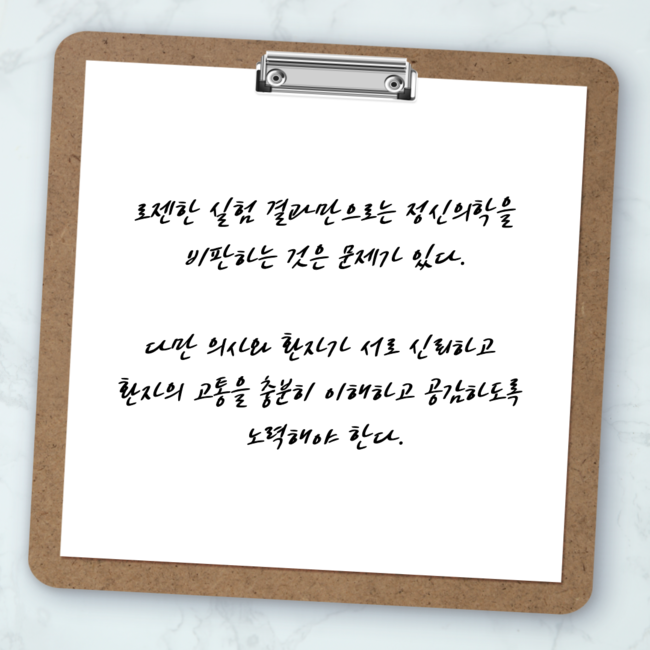 로젠한 실험 결과만으로는 정신의학을
비판하는 것은 문제가 있다.
다만 의사와 환자가 서로 신뢰하고
환자의 고통을 충분히 이해하고 공감하도록
노력해야 한다.